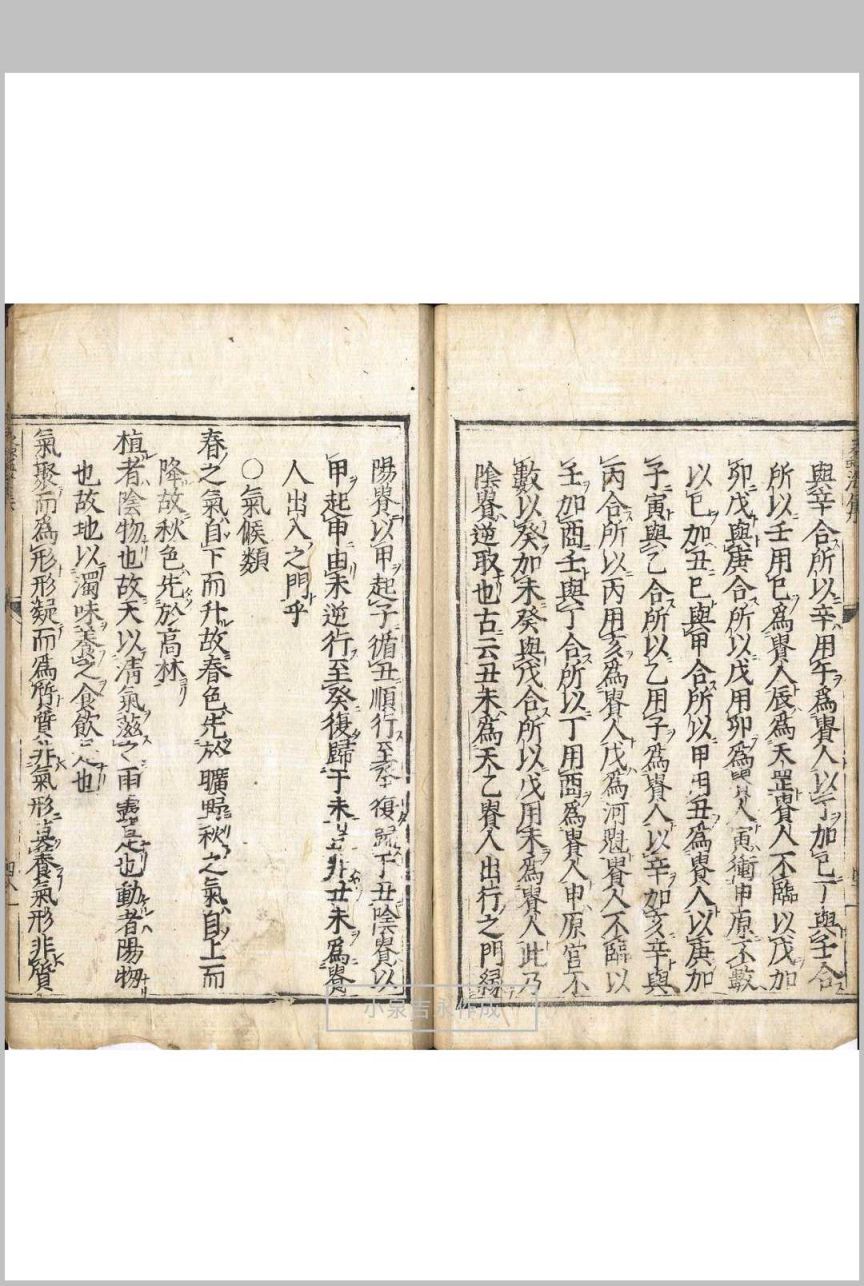 與辛合所以辛用午爲貴人以丁加巳丁與壬合
所以壬用巳爲貴人辰爲天罡貴人不臨以戊加
卯戊與庚合所以戊用卯爲人寅衝申原不數
以巳加丑巳與甲合所以甲用丑爲貴人以庚加
子寅與乙合所以乙用子爲貴人以辛加亥辛與
丙合所以丙用亥爲貴人戊爲河魁貴人不臨以
壬加酉壬與丁合所以丁用酉爲貴人申原官不
數以癸加未癸與戊合所以戊用未爲貴人此乃
陰貴逆取也古云丑未爲天乙貴人出行之門縁
陽貴以甲起子循丑順行至復歸于丑陰貴以
甲起申由未逆行至癸復歸于未非丑未爲貴
人出入之門乎
○氣候類
春之氣自下而升故春色先於曠野秋之氣自上而
降故秋色先於高林
植者陰物也故天以清氣滋之雨露是也動者陽物
也故地以濁味養之食飲是也
氣聚而爲形形凝而爲質質非氣形莫養氣形非質
小泉吉永作成